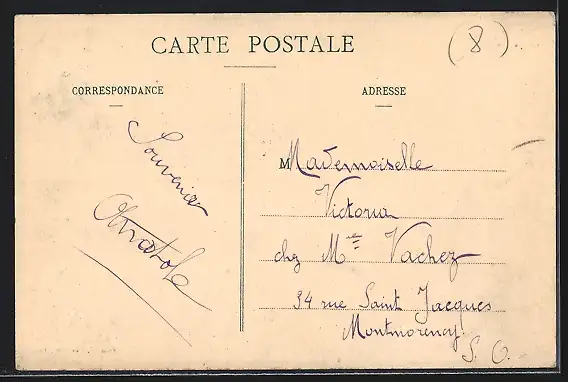 CARTE POSTALE
(8)
CORRESPONDANCE
ADRESSE
Souvenir
Anatole
M Mademoiselle
Victoria
chz Mme Vachez
34 rue Saint Jacques
Montmorency
S. O.